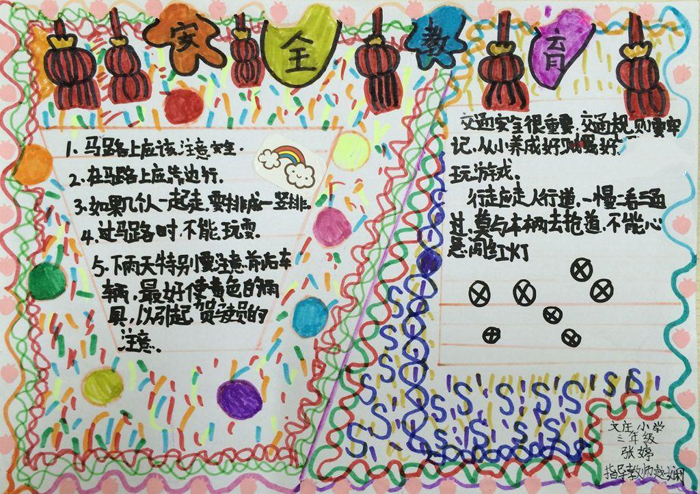 安全教育
1. 马路上应该注意安全.
2. 在马路上应靠边行.
3. 如果几个人一起走,要排成一竖排.
4. 过马路时,不能玩耍.
5. 下雨天特别慢注意前后车
辆,最好使着色的雨
具,以引起驾驶员的
注意.
交通安全很重要,交通规则要牢
记,从小养成好习惯好.
玩游戏.
行走应走人行道,一慢二看三通
过,莫与车辆去抢道,不能心
急闯红灯
文庄小学
三年级
张婷
指导教师